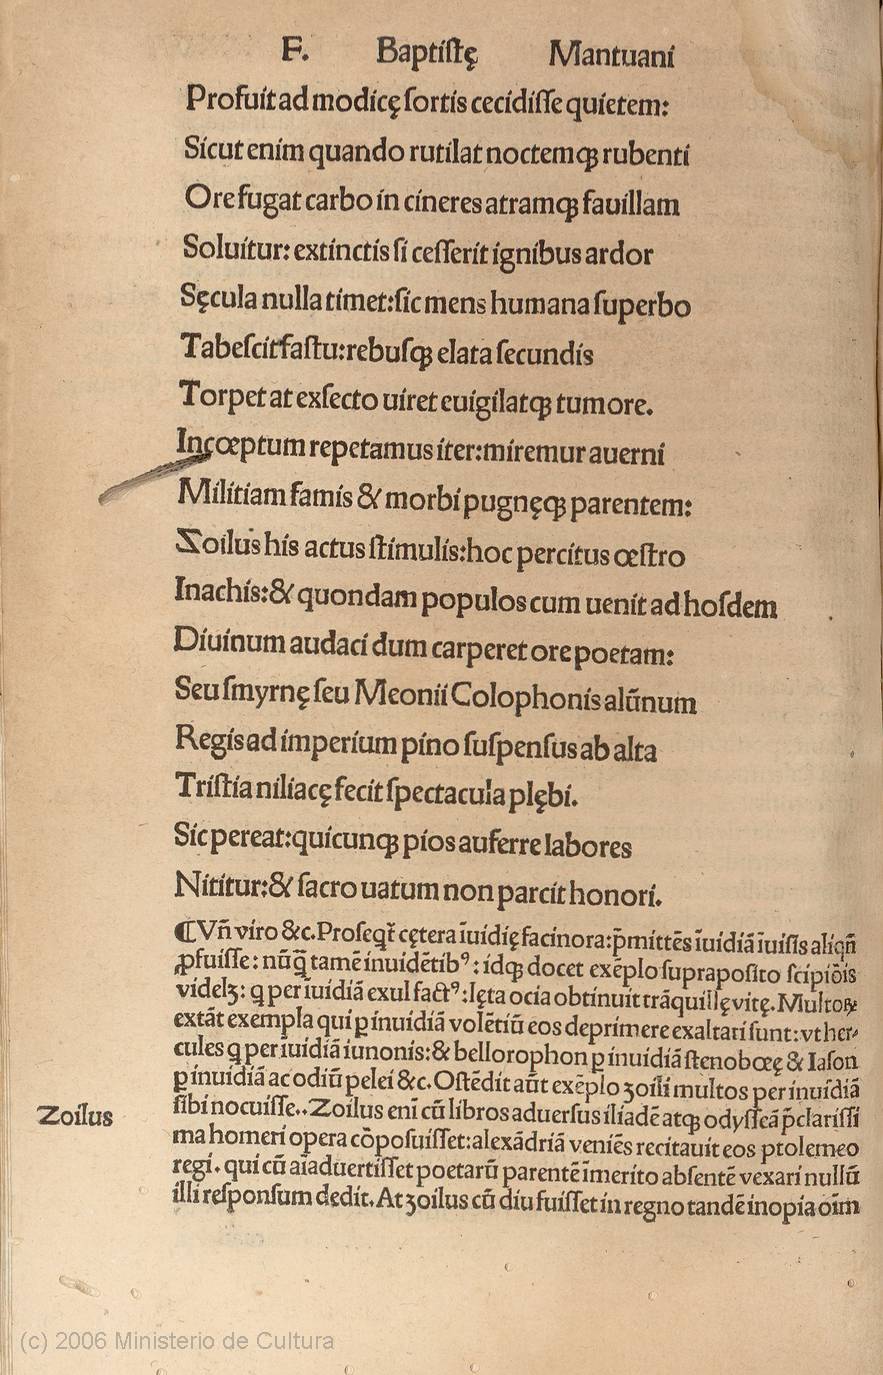 F. Baptiſtę Mantuani
Profuit ad modicę ſortis cecidiſſe quietem:
Sicut enim quando rutilat noctemqꝫ rubenti
Ore fugat carbo in cineres atramqꝫ fauillam
Soluitur: extinctis ſi ceſſerit ignibus ardor
Sęcula nulla timet: ſic mens humana ſuperbo
Tabeſcit faſtu: rebuſqꝫ elata ſecundis
Torpet at exſecto uiret euigilatqꝫ tumore.
Incœptum repetamus iter: miremur auerni
Militiam famis & morbi pugnęqꝫ parentem:
Zoilus his actus ſtimulis: hoc percitus œſtro
Inachis: & quondam populos cum uenit ad hoſdem
Diuinum audaci dum carperet ore poetam:
Seu ſmyrnę ſeu Meonii Colophonis alūnum
Regis ad imperium pino ſuſpenſus ab alta
Triſtia niliacę fecit ſpectacula plębi.
Sic pereat: quicunqꝫ pios auferre labores
Nititur: & ſacro uatum non parcit honori.
¶Vn̄ viro &c. Proſeqr̄ cętera īuidię facinora: p̄mittēs īuidiā īuiſis aliqn̄
ꝓfuiſſe: nūq̄ tamē inuidētibꝰ: idqꝫ docet exēplo ſupra poſito ſcipiōis
videlꝫ: q per īuidiā exul factꝰ: lęta ocia obtinuit trāquillę vitę. Multoꝝ
extāt exempla qui ꝑ inuidiā volētiū eos deprimere exaltati ſunt: vt her-
cules q per īuidiā iunonis: & bellorophon ꝑ inuidiā ſtenobœę & Iaſon
ꝑ inuidiā ac odiū pelei &c. Oſtēdit aūt exēplo ꝫoili multos per inuidiā
Zoilus
ſibi nocuiſſe. Zoilus eni cū libros aduerſus iliadē atqꝫ odyſſeā p̄clariſſi
ma homeri opera cōpoſuiſſet: alexādriā veniēs recitauit eos ptolemeo
regi. qui cū aīaduertiſſet poetarū parentē īmerito abſentē vexari nullū
illi reſponſum dedit. At ꝫoilus cū diu fuiſſet in regno tandē inopia oīm
(c) 2006 Ministerio de Cultura